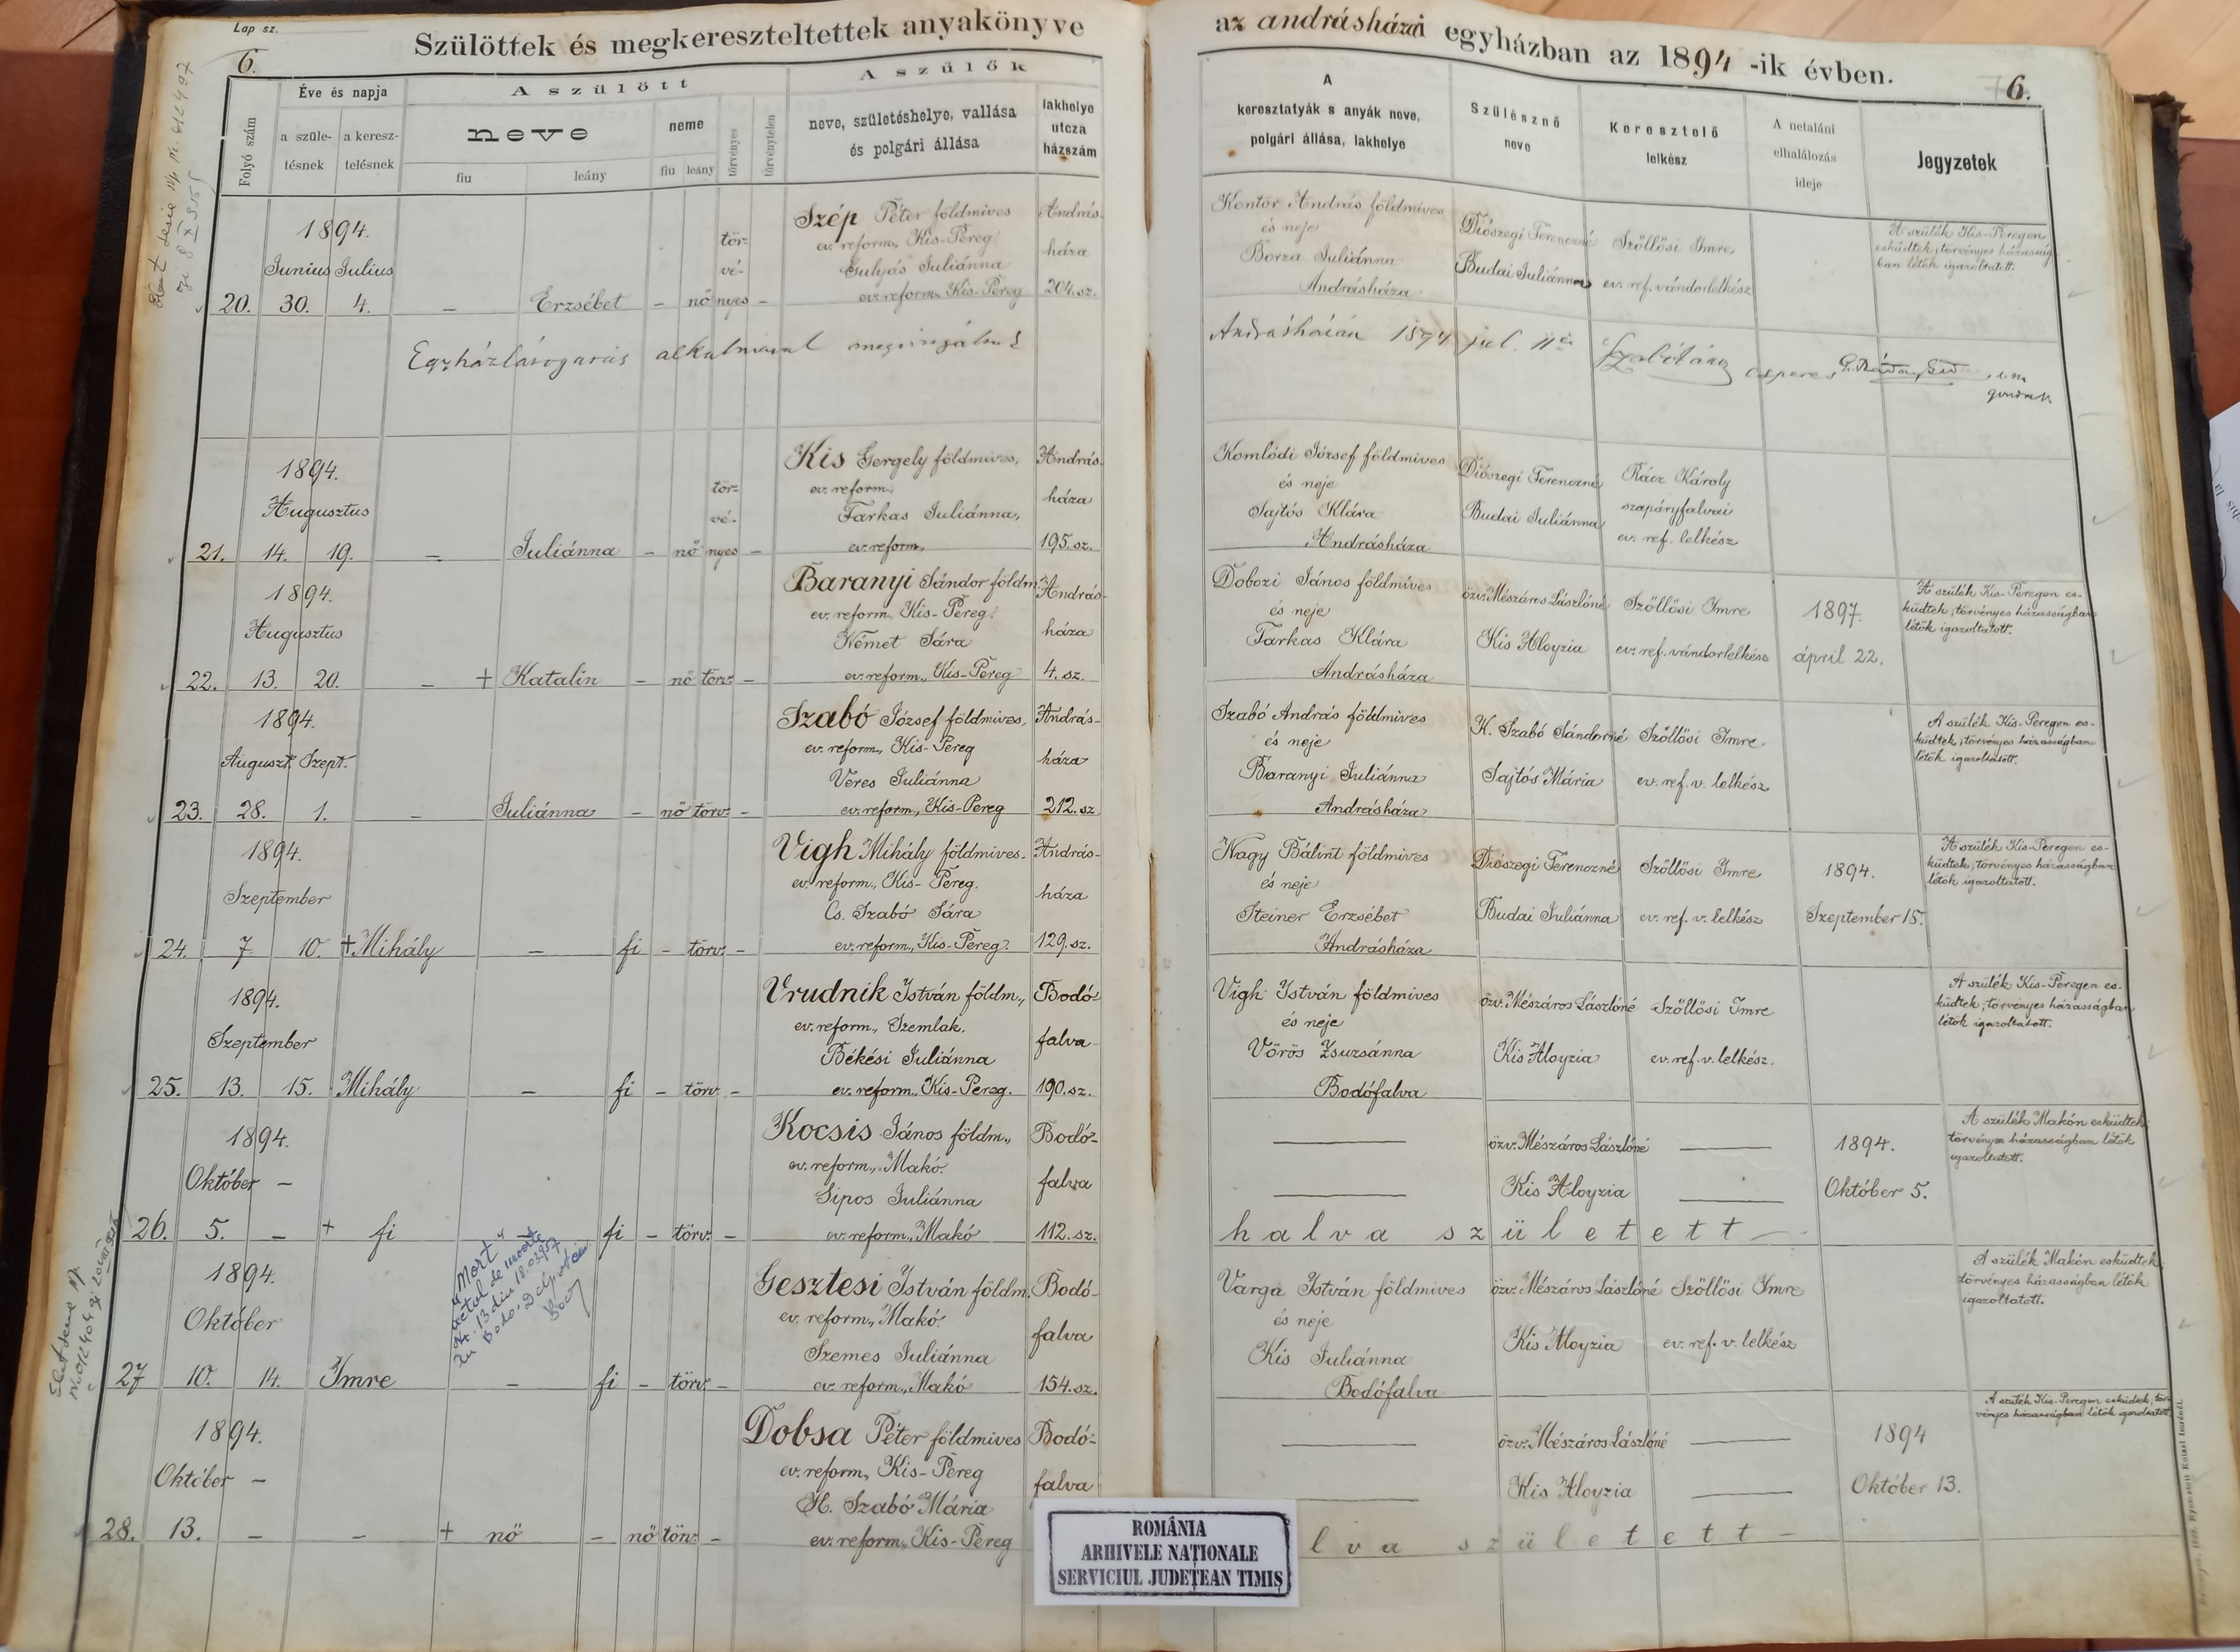 Lap sz.
6.
Szülöttek és megkereszteltettek anyakönyve
az andrásházai egyházban az 1894-ik évben.
6.
Folyó szám
Éve és napja
a szüle-
tésnek
a keresz-
telésnek
A szülött
neve
fiu
leány
neme
fiu
leány
törvényes
törvénytelen
A szülők
neve, születéshelye, vallása
és polgári állása
lakhelye
utcza
házszám
A
keresztatyák s anyák neve,
polgári állása, lakhelye
Szülésznő
neve
Keresztelő
lelkész
A netaláni
elhalálozás
ideje
Jegyzetek
1894.
Junius Julius
20. 30. 4. – Erzsébet – nő törvényes –
Szép Péter földmives
ev. reform., Kis-Pereg.
Gulyás Juliánna
ev. reform. Kis-Pereg
András-
háza
204. sz.
Kontór András földmives
és neje
Borza Juliánna
Andrásháza
Diószegi Ferenczné
Budai Juliánna
Szőllősi Imre
ev. ref. vándorlelkész
A szülék Kis-Peregen
esküdtek; törvényes házasság-
ban létök igazoltatott.
Egyházlátogatás alkalmával megvizsgált
Andrásházán 1894 jul. 11én
esperes
gondnok
1894.
Augusztus
21. 14. 19. – Juliánna – nő törvényes –
Kis Gergely földmives,
ev. reform.
Farkas Juliánna,
ev. reform.
András-
háza
195. sz.
Komlódi József földmives
és neje
Sajtós Klára
Andrásháza
Diószegi Ferenczné
Budai Juliánna
Rácz Károly
szapáryfalvai
ev. ref. lelkész
1894.
Augusztus
22. 13. 20. – + Katalin – nő törv. –
Baranyi Sándor földm.
ev. reform., Kis-Pereg.
Német Sára
ev. reform., Kis-Pereg
András-
háza
4. sz.
Dobozi János földmíves
és neje
Farkas Klára
Andrásháza
özv. Mészáros Lászlóné
Kis Aloyzia
Szőllősi Imre
ev. ref. vándorlelkész
1897.
április 22.
A szülék Kis-Peregen es-
küdtek; törvényes házasságban
létök igazoltatott.
1894.
Auguszt. Szept.
23. 28. 1. – Juliánna – nő törv. –
Szabó József földmives,
ev. reform., Kis-Pereg
Veres Juliánna
ev. reform., Kis-Pereg
András-
háza
212. sz
Szabó András földmives
és neje
Baranyi Juliánna
Andrásháza
K. Szabó Sándorné
Sajtós Mária
Szőllősi Imre
ev. ref. v. lelkész
A szülék Kis-Peregen es-
küdtek; törvényes házasságban
létök igazoltatott.
1894.
Szeptember
24. 7. 10. + Mihály – fi – törv. –
Vigh Mihály földmives.
ev. reform., Kis-Pereg.
Cs. Szabó Sára
ev. reform., Kis-Pereg.
András-
háza
129. sz.
Nagy Bálint földmives
és neje
Steiner Erzsébet
Andrásháza
Diószegi Ferenczné
Budai Juliánna
Szőllősi Imre
ev. ref. v. lelkész
1894.
Szeptember 15.
A szülék Kis-Peregen es-
küdtek; törvényes házasságban
létök igazoltatott.
1894.
Szeptember
25. 13. 15. Mihály – fi – törv. –
Vrudnik István földm.,
ev. reform., Szemlak.
Békési Juliánna
ev. reform., Kis-Pereg.
Bodó-
falva
190. sz.
Vigh István földmives
és neje
Vörös Zsuzsánna
Bodófalva
özv. Mészáros Lászlóné
Kis Aloyzia
Szőllősi Imre
ev. ref. v. lelkész.
A szülék Kis-Peregen es-
küdtek; törvényes házasságban
létök igazoltatott.
1894.
Október –
26. 5. – + fi – fi – törv. –
Kocsis János földm.,
ev. reform., Makó.
Sipos Juliánna
ev. reform., Makó
Bodó-
falva
112. sz.
özv. Mészáros Lászlóné
Kis Aloyzia
1894.
Október 5.
halva született –
A szülék Makón esküdtek;
törvényes házasságban létök
igazoltatott.
"Mort"
actul de moarte
Nr. 13 din 18.02.957
1894.
Október
27 10. 14. Imre – fi – törv. –
Gesztesi István földm.
ev. reform., Makó.
Szemes Juliánna
ev. reform., Makó
Bodó-
falva
154. sz.
Varga István földmives
és neje
Kis Juliánna
Bodófalva
özv. Mészáros Lászlóné
Kis Aloyzia
Szőllősi Imre
ev. ref. v. lelkész
A szülék Makón esküdtek;
törvényes házasságban létök
igazoltatott.
1894.
Október –
28. 13. – – + nő – nő törv. –
Dobsa Péter földmives
ev. reform., Kis-Pereg
H. Szabó Mária
ev. reform., Kis-Pereg
Bodó-
falva
özv. Mészáros Lászlóné
Kis Aloyzia
1894
Október 13.
lva született –
A szülék Kis-Peregen esküdtek, tör-
vényes házasságban létök igazoltatott.
ROMÂNIA
ARHIVELE NAȚIONALE
SERVICIUL JUDEȚEAN TIMIȘ